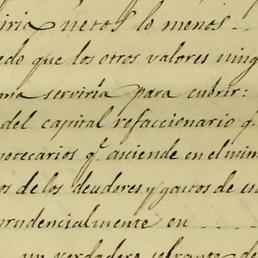 iria netos lo menos
edo que los otros valores ning
ma serviría para cubrir:
del capital refaccionario q.
potecarios q.e asciende en el mim
os de los deudores y gastos de
prudencialmente en
un verdadero sobrante de